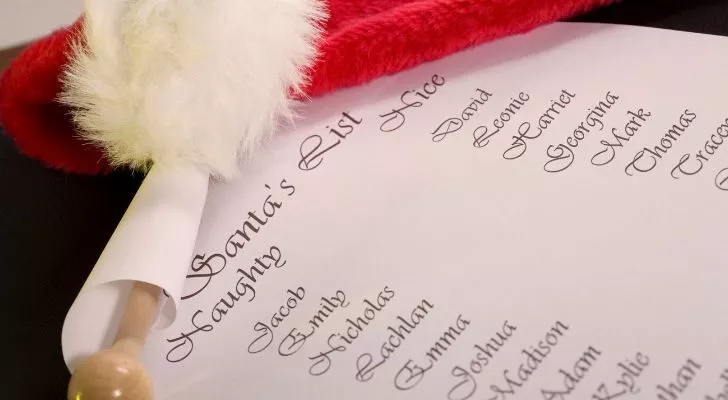 Santa's List
Naughty
Jacob
Emily
Nicholas
Lachlan
Emma
Joshua
Madison
Adam
Kylie
Nice
David
Leonie
Harriet
Georgina
Mark
Thomas